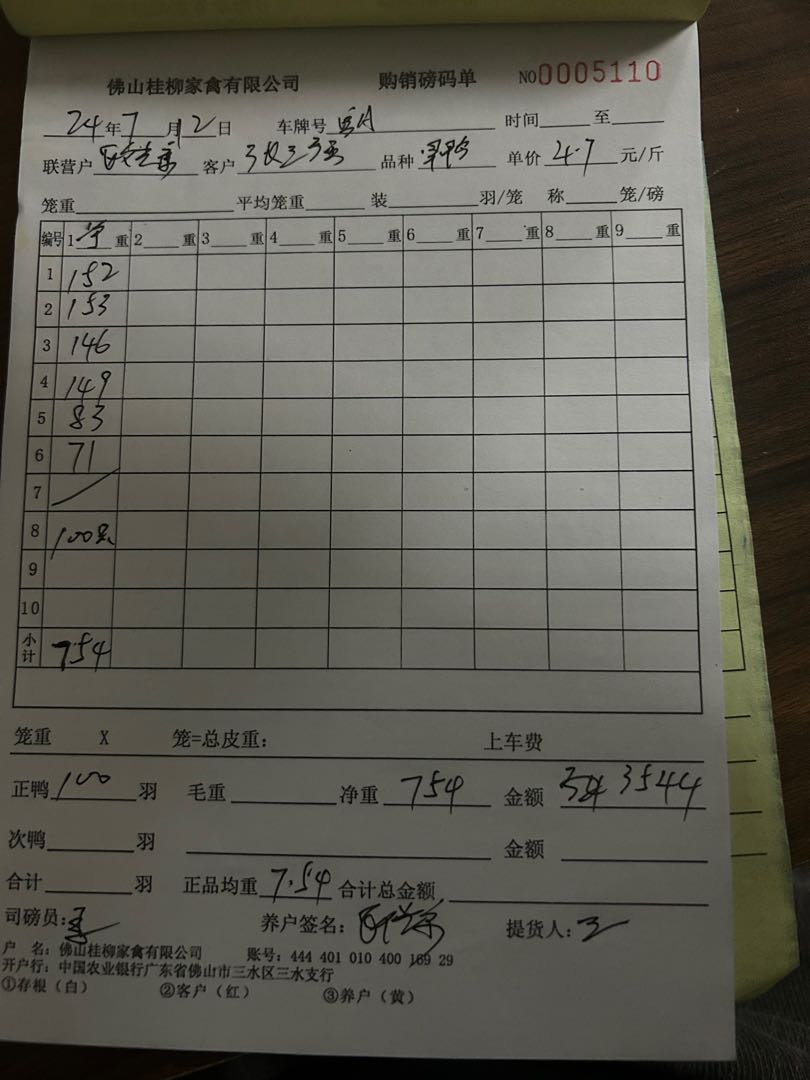 佛山桂柳家禽有限公司 购销磅码单 NO0005110
24年7月12日 车牌号 时间 至
联营户 客户 品种 单价4.7元/斤
笼重 平均笼重 装 羽/笼 称 笼/磅
编号 1 重 2 重 3 重 4 重 5 重 6 重 7 重 8 重 9 重
1 152
2 153
3 146
4 149
5 83
6 71
7
8 100只
9
10
小计 754
笼重 X 笼=总皮重: 上车费
正鸭100羽 毛重 净重 754 金额 3544
次鸭 羽 金额
合计 羽 正品均重 7.54 合计总金额
司磅员: 养户签名: 提货人:
户 名: 佛山桂柳家禽有限公司 账号: 444 401 010 400 169 29
开户行: 中国农业银行广东省佛山市三水区三水支行
①存根(白) ②客户(红) ③养户(黄)